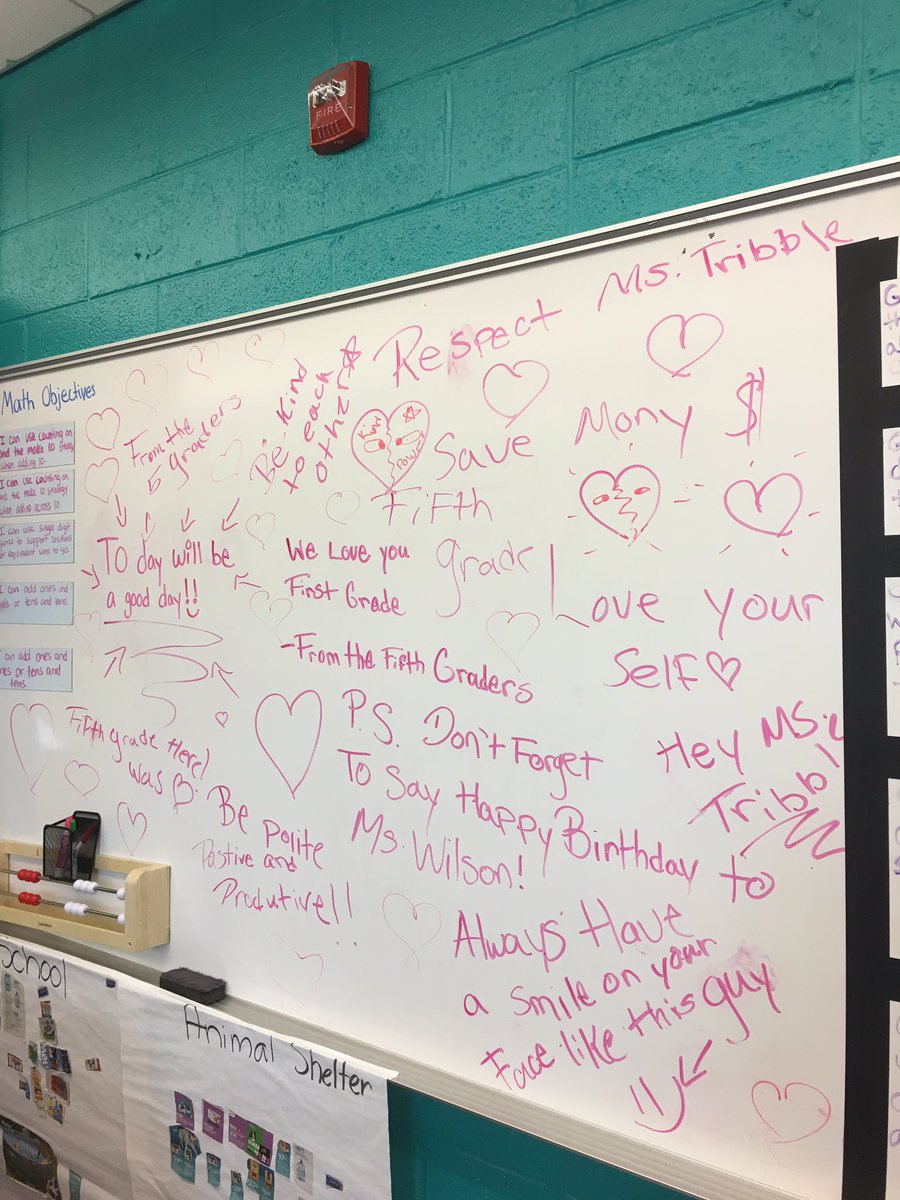 FIRE
Math Objectives
I can use counting on
and the make 10 strategy
when adding 10.
I can use counting on
and the make 10 strategy
when adding across 10
I can use single digit
sums to support solutions
for equivalent sums to 40.
I can add ones and
or tens and tens.
I can add ones and
ones or tens and
tens.
From the
5 graders
To day will be
a good day!!
Be Kind
to each
othr
Respect Ms. Tribble
Kind
Power
Save Mony $
Fifth
grade!
We Love you
First Grade
-From the Fifth Graders
Love your
Self
P.S. Don't Forget
To Say Happy Birthday to
Ms. Wilson!
Hey Ms.
Tribbl
Fifth grade Here!
was
Be polite
Postive and
Produtive!!
Always Have
a smile on your
Face like this guy
School
Animal Shelter